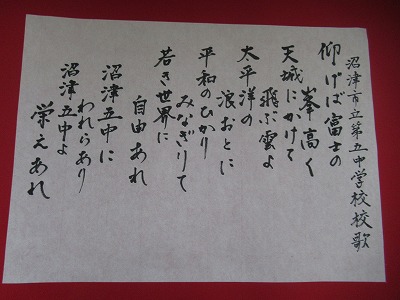 沼津市立第五中学校校歌
仰げば富士の
峯高く
天城にかけて
飛ぶ雲よ
太平洋の
浪おとに
平和のひかり
みなぎりて
若き世界に
自由あれ
沼津五中に
われらあり
沼津五中よ
栄えあれ